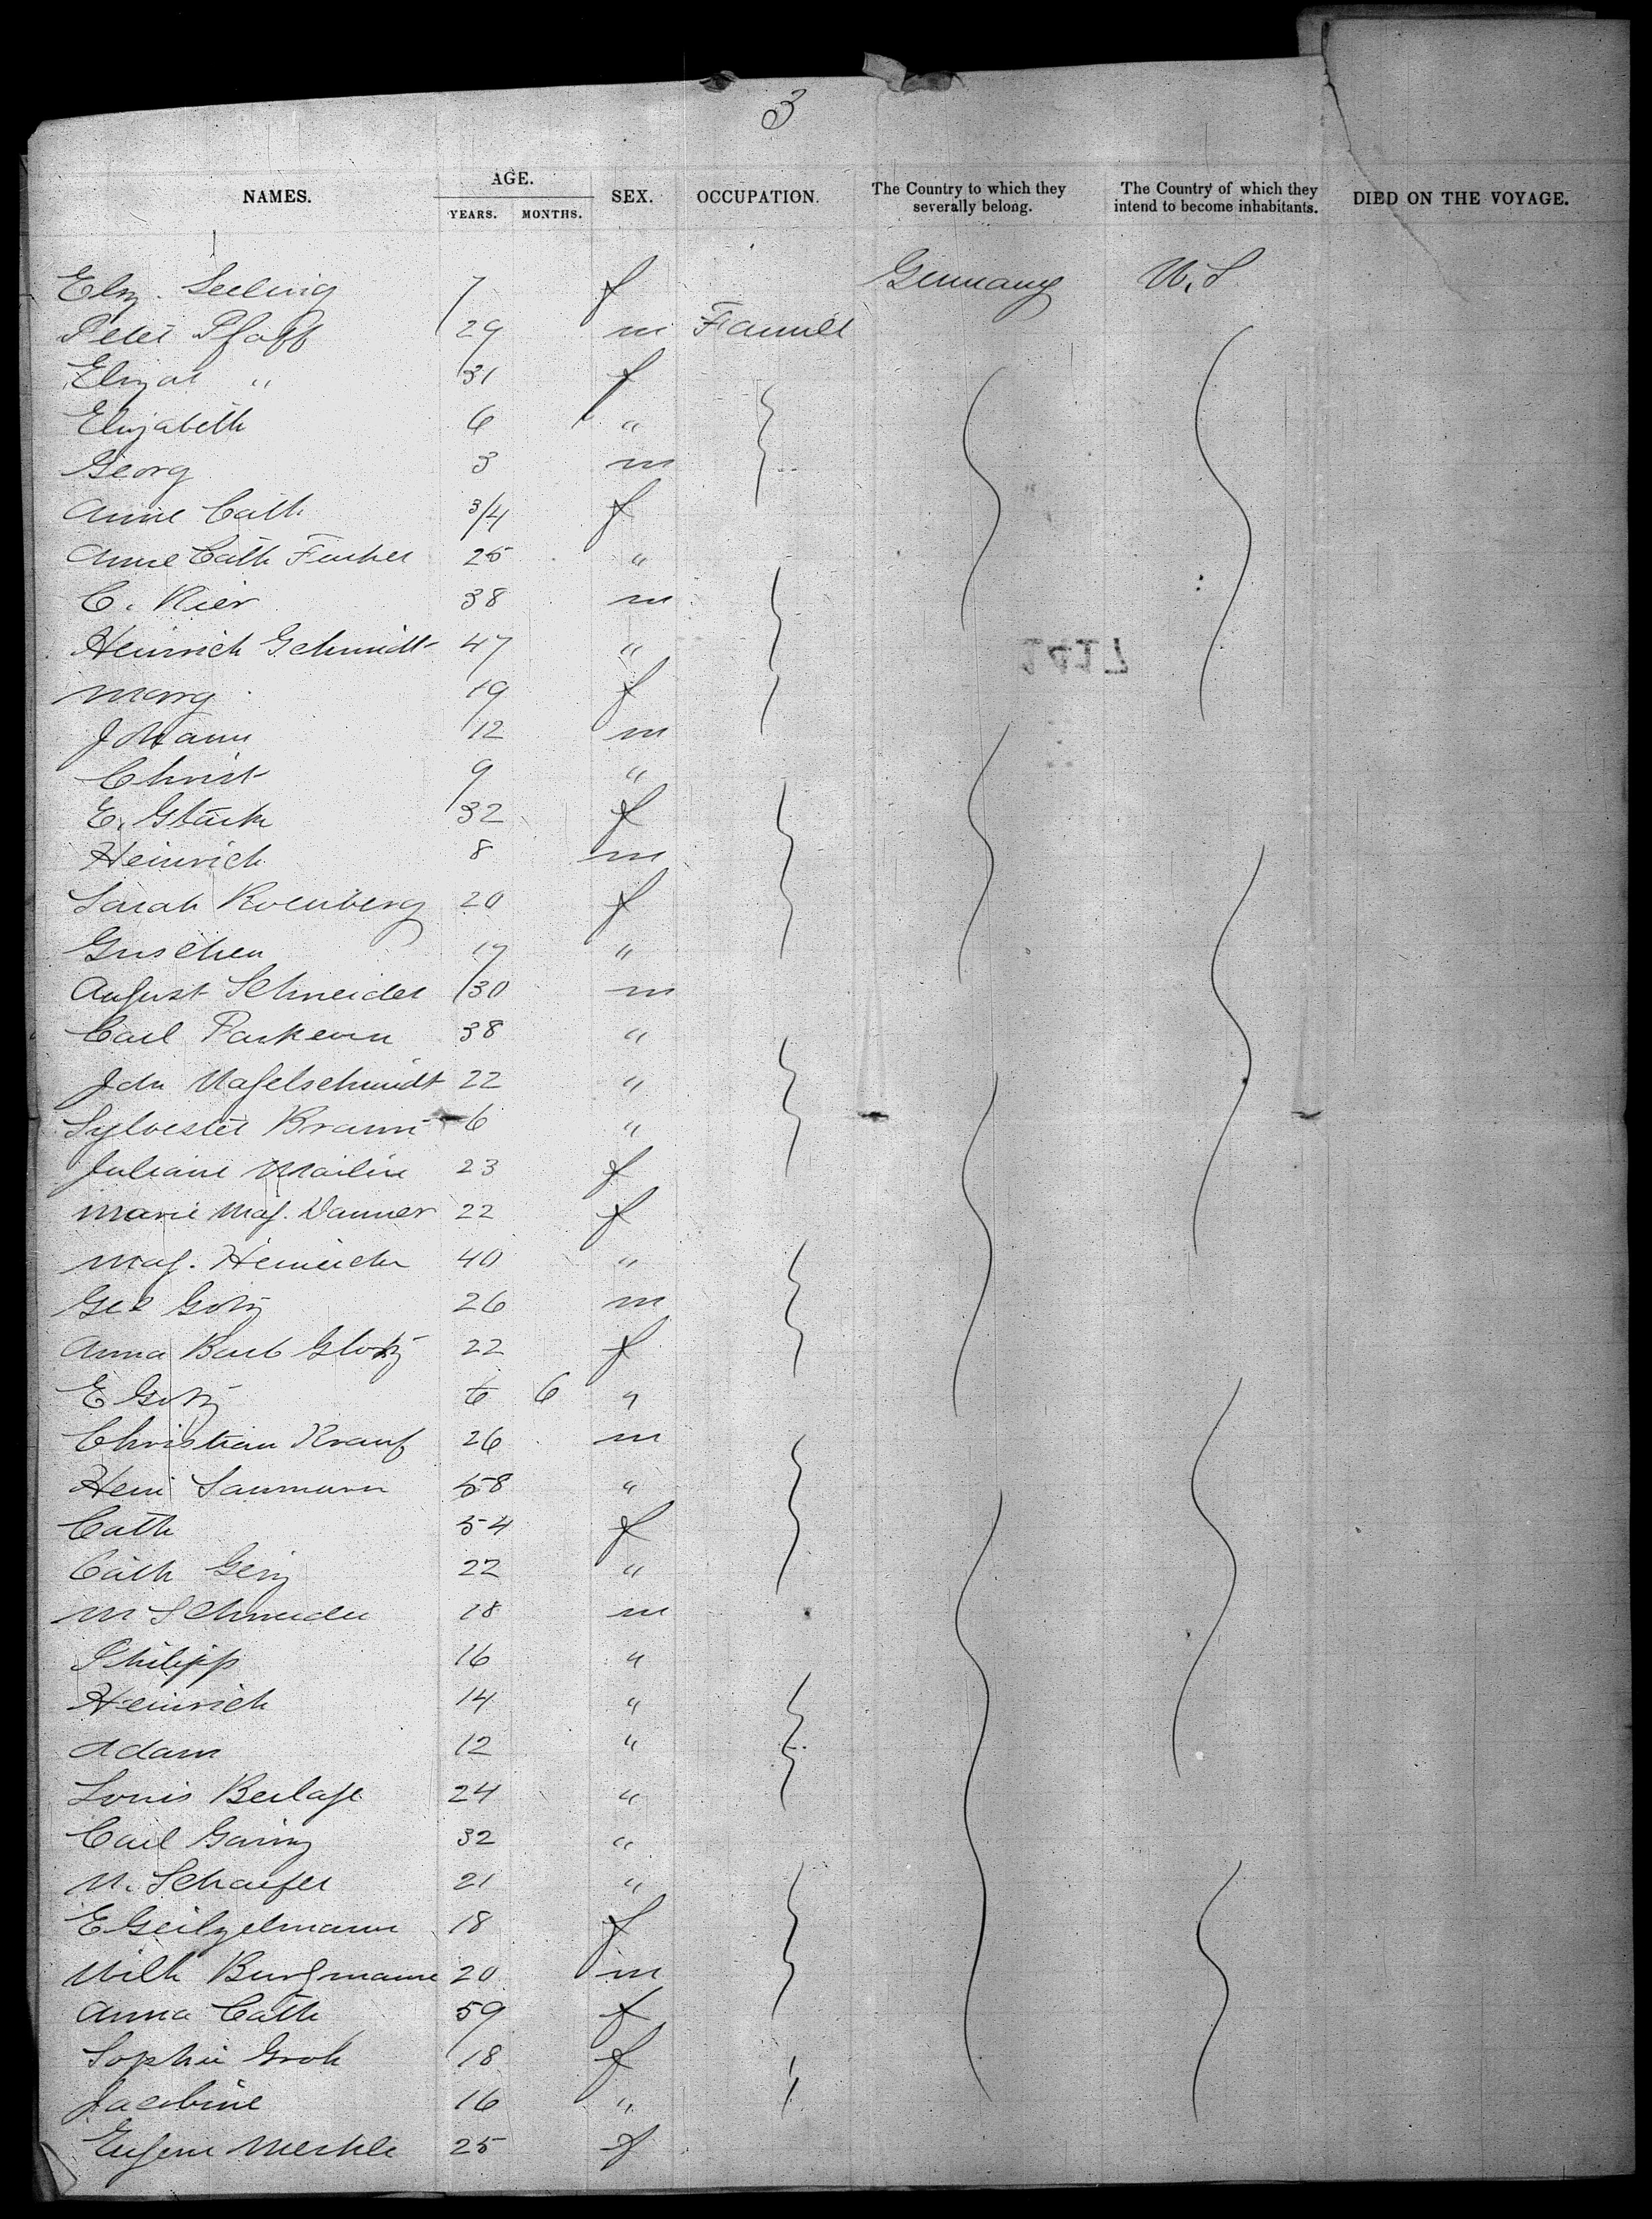 3
NAMES. AGE. YEARS. MONTHS. SEX. OCCUPATION. The Country to which they severally belong. The Country of which they intend to become inhabitants. DIED ON THE VOYAGE.
Eliz. Seeling 7 f Germany U.S.
Peter Pfaff 29 m Farmer
Elizab " 31 f
Elizabeth 6 "
Georg 3 m
Anne Cath 3/4 f
Anne Cath Fincher 25 "
C. Rier 38 m
Heinrich Schmidt 47 "
Marg 19 f
Johann 12 m
Christ 9 "
E. Stark 32 f
Heinrich 8 m
Sarah Rosenberg 20 f
Guschen 17 "
August Schneider 30 m
Carl 38 "
Joh Nagelschmidt 22 "
Sylvester Braun 6 "
Juliane 23 f
Marie Mag. Danner 22 f
Mag. Heinrich 40 "
Geo Götz 26 m
Anna Barb Götz 22 f
E Götz 6 6 "
Christian Krauß 26 m
Hein Saumann 58 "
Cath 54 f
Cath 22 "
M Schneider 18 m
Philipp 16 "
Heinrich 14 "
Adam 12 "
Louis Berlage 24 "
Carl 32 "
N. Schaefer 21 "
E Geitzelmann 18 f
Wilh Burgmann 20 m
Anna Cath 59 f
Sophie Groh 18 f
Jacobine 16 "
Eugene Merkle 25 f
1417